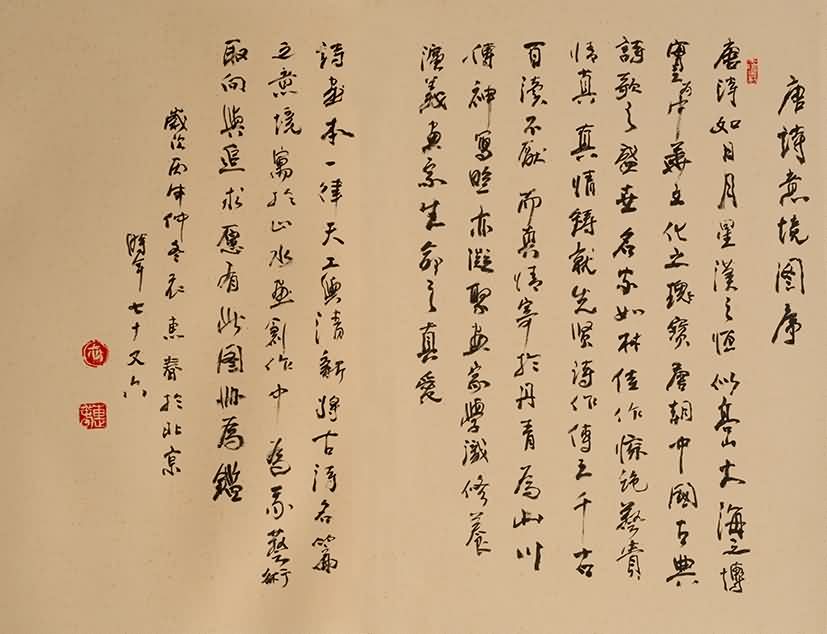 唐詩意境图序
唐诗如日月星漢之恒似高山大海之博
實為中華文化之瑰寶唐朝中國古典
詩歌之盛世名家如林佳作惊艳藝貴
情真真情鑄就先贤诗作傳之千古
百读不厭而真情寄於丹青為山川
傳神寫照亦凝聚画家學識修養
濡義画家生命之真爱
詩画本一律天工與清新将古诗名篇
之意境寓於山水画創作中為我藝術
取向與追求愿有此图册為鑑
歲次丙申仲冬 惠春於北京
時年七十又六